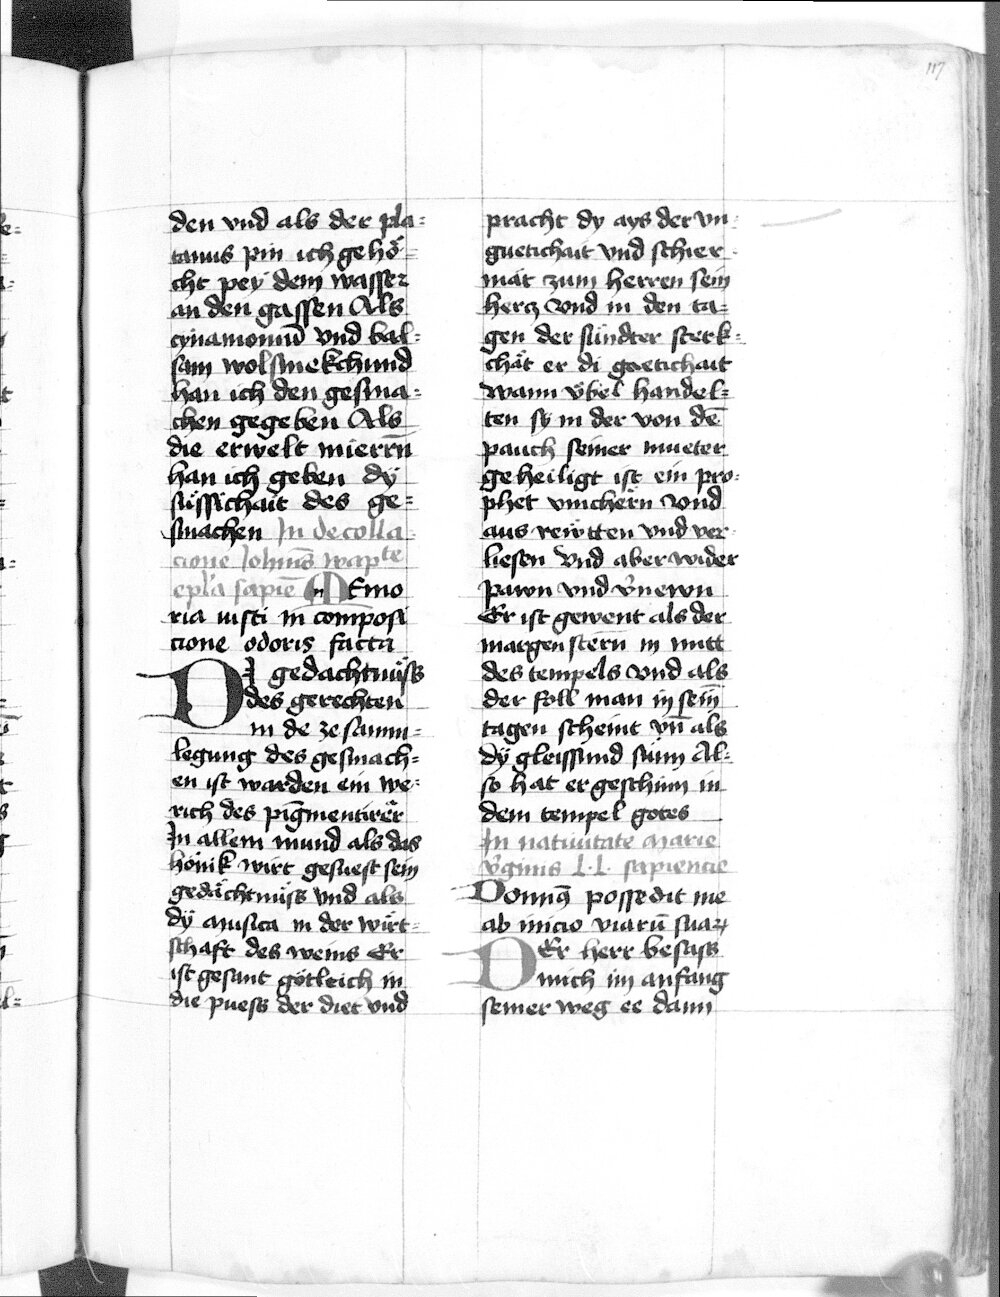 117
den vnd als der pla=
tanus pin ich gehö=
cht peÿ dem wasser
an den gassen Als
cynamomū vnd bal=
sam wolsmekchund
han ich den gesma=
chen gegeben Als
die erwelt mierrn̄
han ich geben dÿ
süssichait des ge=
smachen In decolla
cione Iohn̄is wapte
epl̄a sapiē MEmo
ria iusti in composi
cione odoris facta
DI gedachtnüss
des gerechten
in de ze samm=
legung des gesmach=
en ist warden ein we=
rich des pigmentirër
In allem mund als das
hönik wirt gesuest sein
gedächtnüss vnd als
dÿ musica in der wirt=
schaft des weins Er
ist gesant götleich in
die puess der diet vnd
pracht dy ays der vn=
guetichait vnd schier=
mät zum herren sein
hercz vnd in den ta=
gen der sündter sterk=
chät er di guetichait
wann vbel handel=
ten sy in der von dē
pauch seiner mueter
geheiligt ist ein pro=
phet vmchern vnd
aus rewtten vnd ver=
liesen vnd aber wider
pawn vnd vnewn
Er ist gewent als der
margenstern in mitt
des tempels vnd als
der foll man in sein
tagen scheint vn̄ als
dÿ gleissund sunn Al=
so hat er geschinn in
dem tempel gotes
In natiuitate marie
v̄ginis L.L. sapiencie
Domin⁹ possedit me
ab inicio viarū suaꝝ
DEr herr besass
mich im anfang
seiner weg ee dann